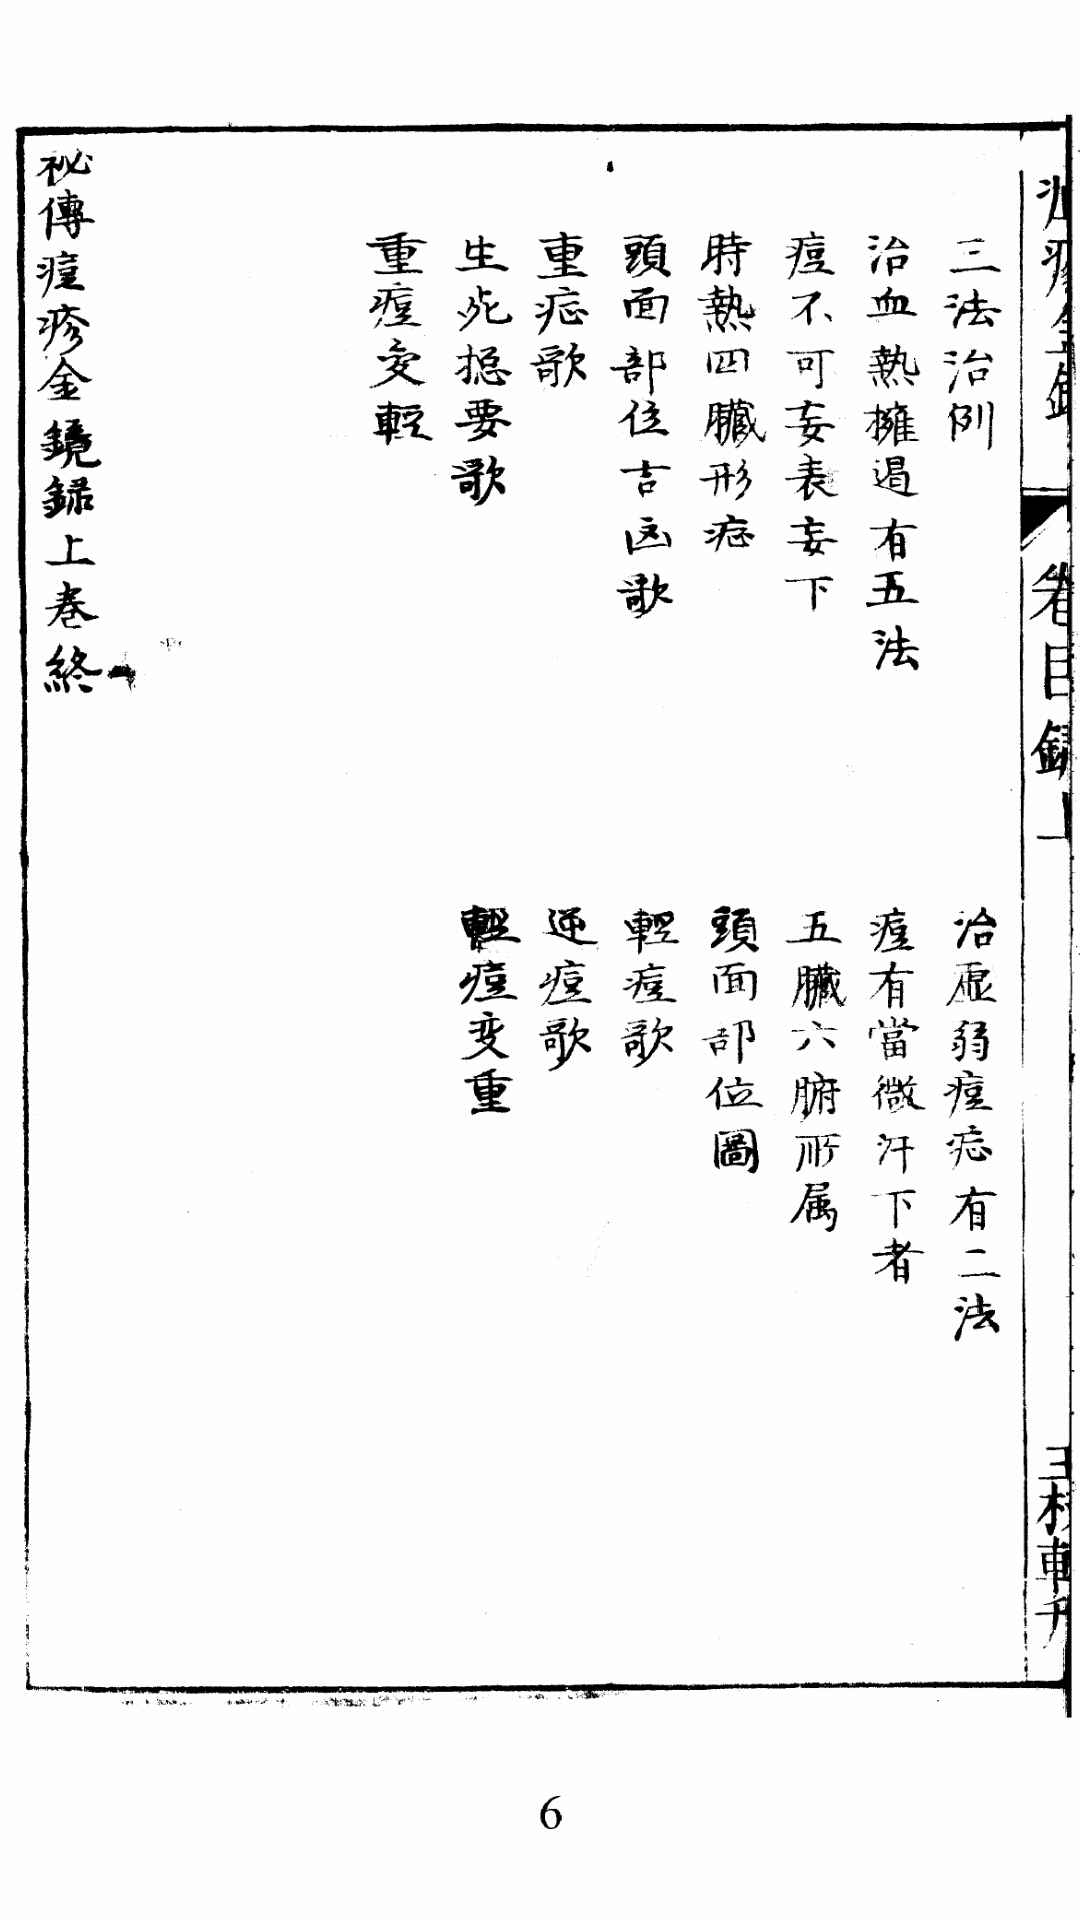 三法治例
治虛弱痘症有二法
治血熱擁遏有五法
痘有當微汗下者
痘不可妄表妄下
五臟六腑所属
時熱四臟形症
頭面部位圖
頭面部位吉凶歌
輕痘歌
重症歌
逆痘歌
生死捴要歌
輕痘变重
重痘变輕
秘傳痘疹金鏡録上卷終
卷目録上
6